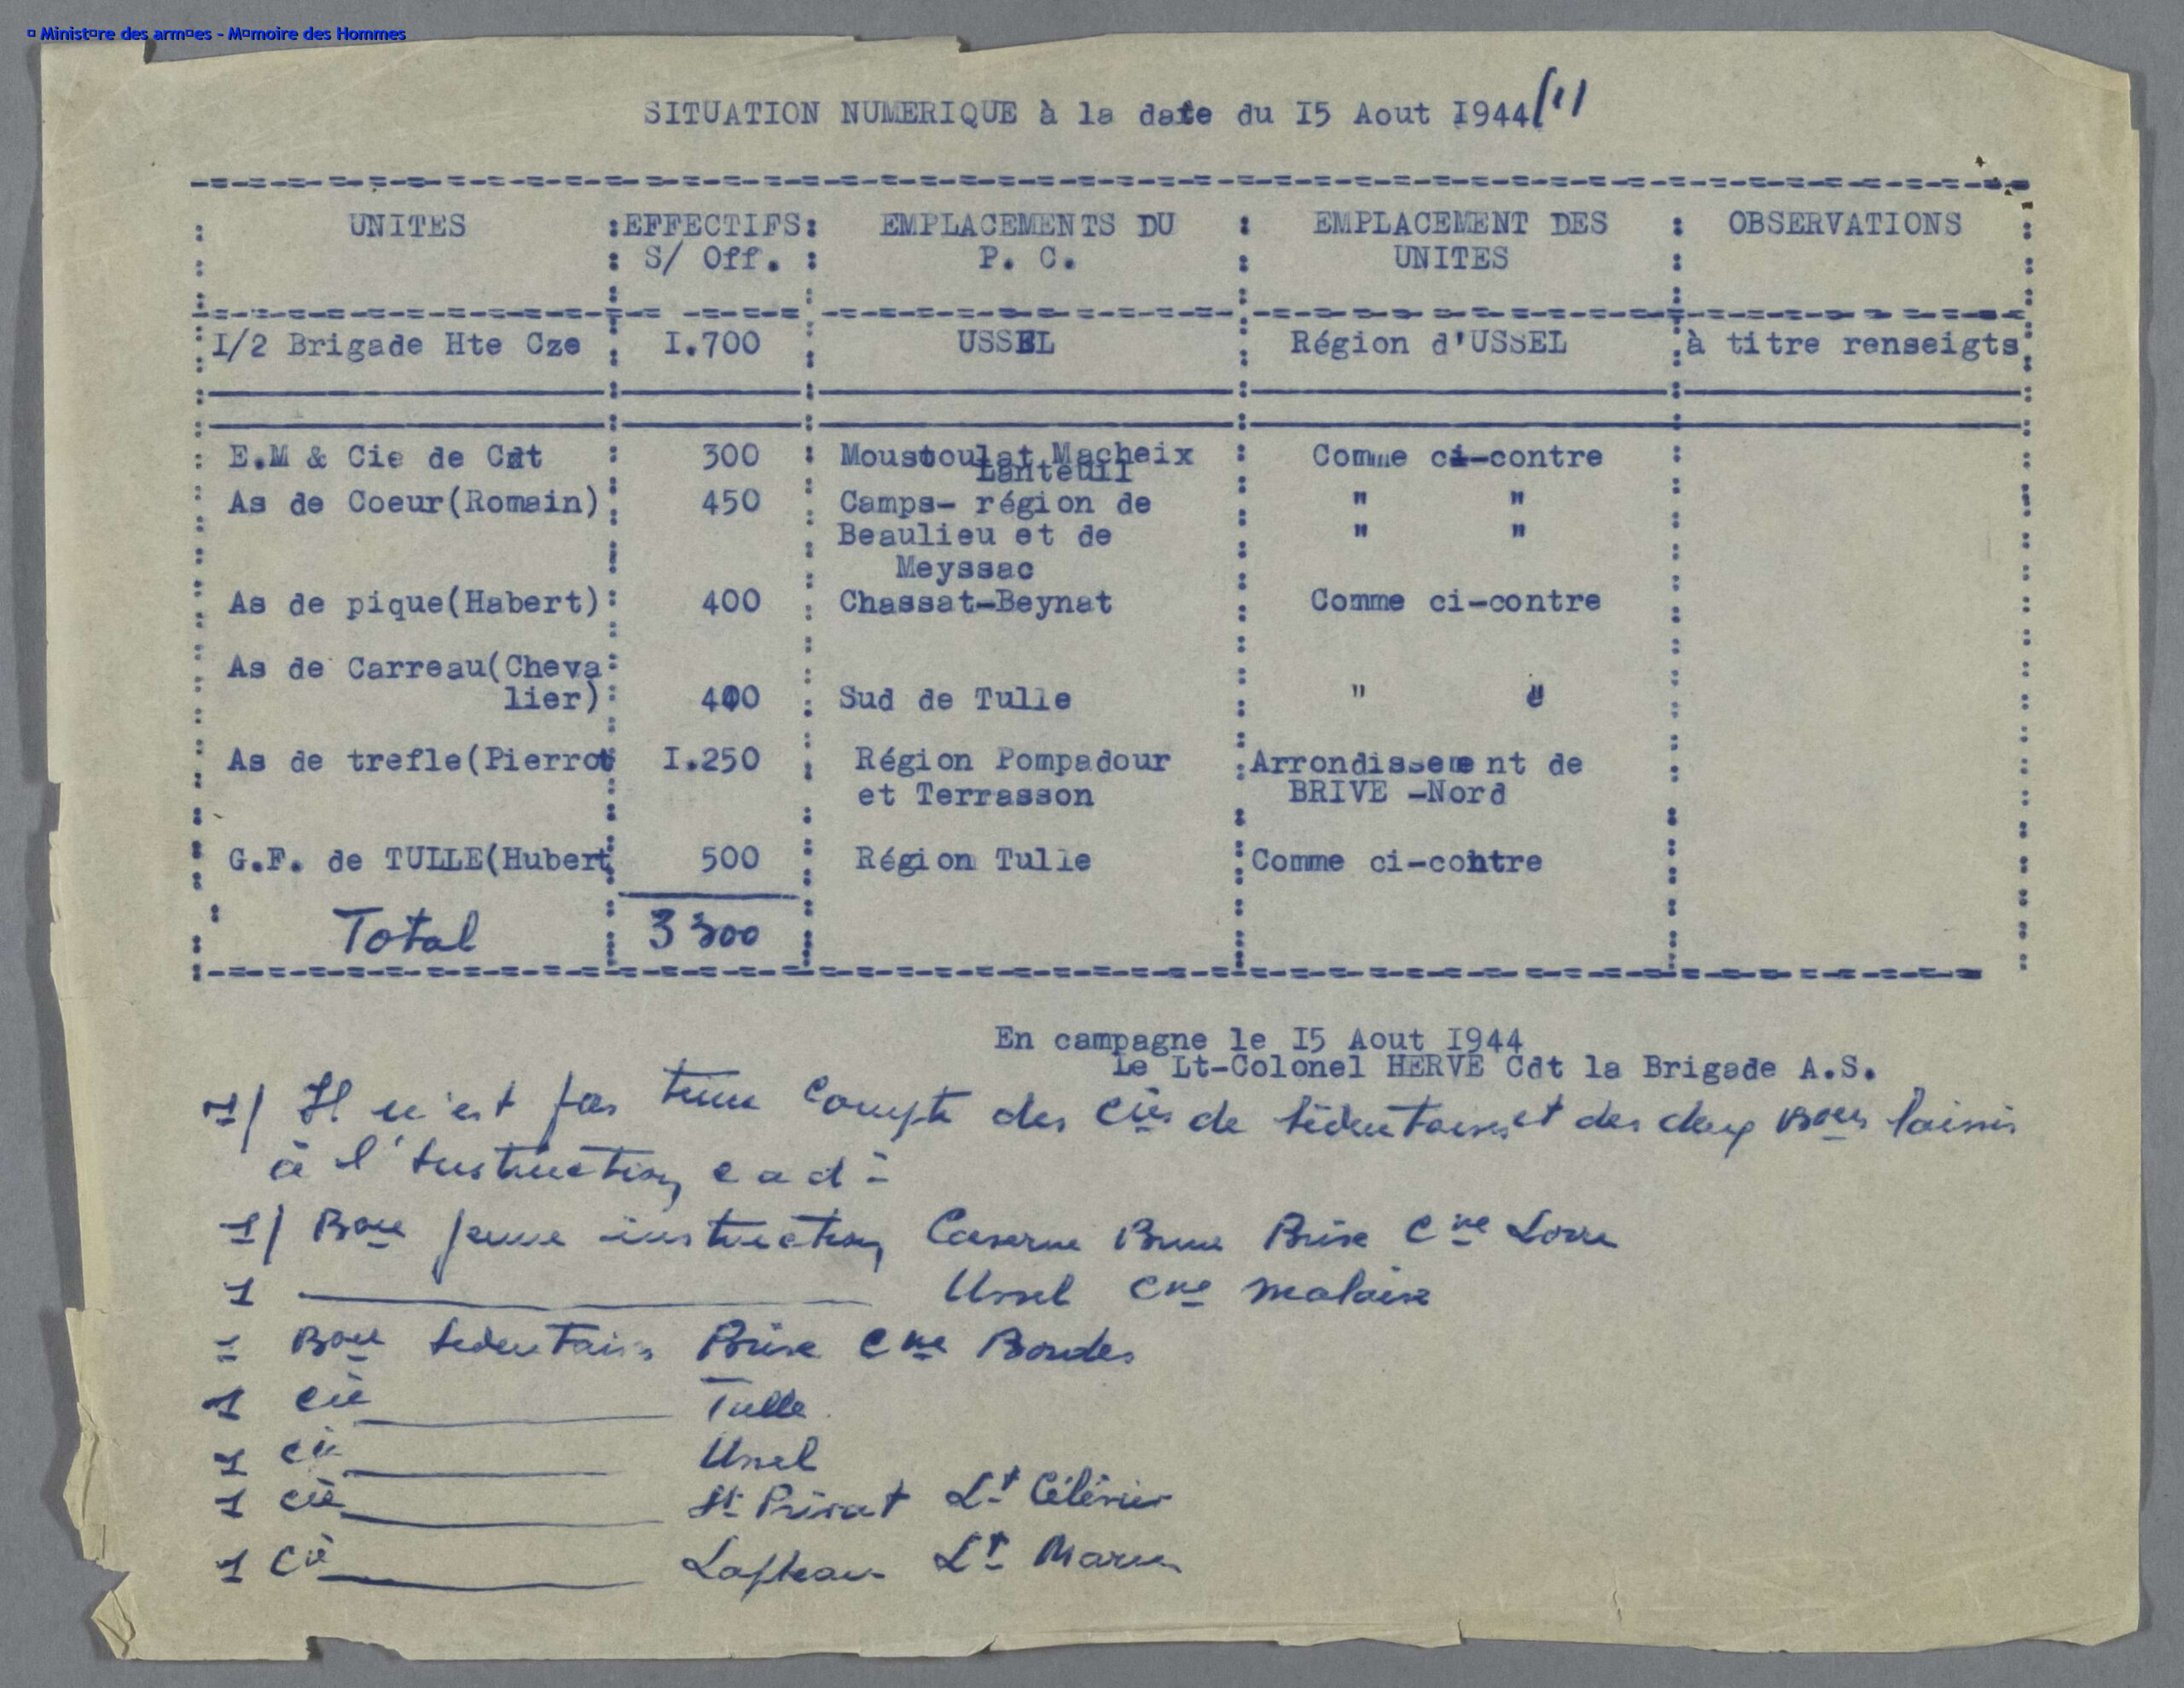 ▯ Minist▯re des arm▯es - M▯moire des Hommes
SITUATION NUMERIQUE à la date du I5 Aout I944 (1)
UNITES : EFFECTIFS : EMPLACEMENTS DU : EMPLACEMENT DES : OBSERVATIONS
S/ Off. : P. C. : UNITES
I/2 Brigade Hte Cze : I.700 : USSEL : Région d'USSEL : à titre renseigts
E.M & Cie de Cdt : 300 : Moustoulat Macheix : Comme ci-contre
Lanteuil
As de Coeur(Romain) : 450 : Camps- région de : " "
Beaulieu et de : " "
Meyssac
As de pique(Habert) : 400 : Chassat-Beynat : Comme ci-contre
As de Carreau(Cheva
lier) : 400 : Sud de Tulle : " "
As de trefle(Pierrot : I.250 : Région Pompadour : Arrondissement de
et Terrasson : BRIVE -Nord
G.F. de TULLE(Hubert : 500 : Région Tulle : Comme ci-contre
Total 3300
En campagne le I5 Aout I944
Le Lt-Colonel HERVE Cdt la Brigade A.S.
1/ Il n'est pas tenu compte des Cies de sédentaires et des deux Bons laissés
à l'instruction, c a d :
1/ Bon jeune instruction Caserne Brune Brive Cne
1 Ussel Cne Malaise
= Bon sédentaires Brive Cne Bordes
1 Cie Tulle
1 Cie Ussel
1 Cie St Privat Lt Célérier
1 Cie Lapleau Lt